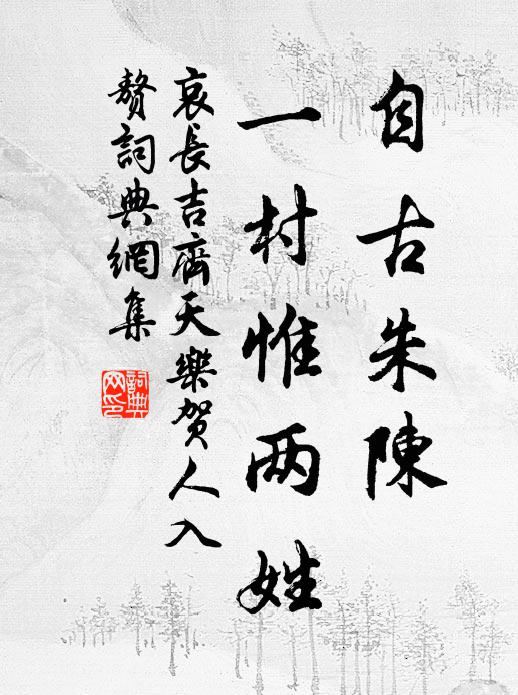 自古朱陳
一村惟两姓
哀長吉齊天樂賀人入
贅詞典網集
詞典
网印